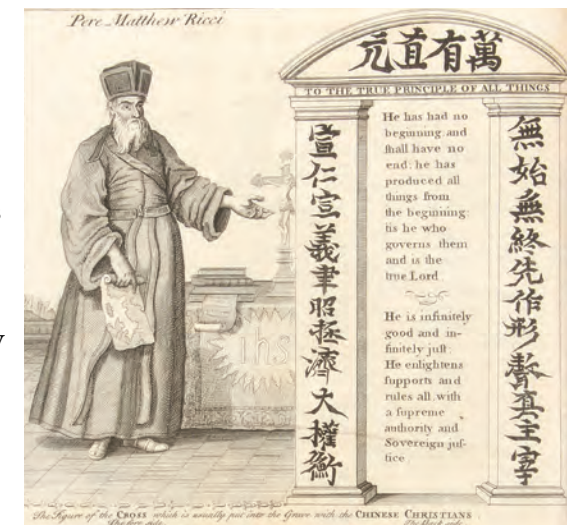 Pere Matthew Ricci
萬有直元
TO THE TRUE PRINCIPLE OF ALL THINGS
無始無終先作形聲真主宰
宣仁宣義聿昭拯濟大權衡
He has had no
beginning and
ſhall have no
end: he has
produced all
things from
the beginning:
tis he who
governs them
and is the
true Lord
He is infinitely
good and in-
finitely juſt:
He enlightens
ſupports and
rules all with
a ſupreme
authority and
Sovereign juſ-
tice
ihs
The Figure of the CROSS which is usually put into the Grave with the CHINESE CHRISTIANS
The fore side. The Back side.
y